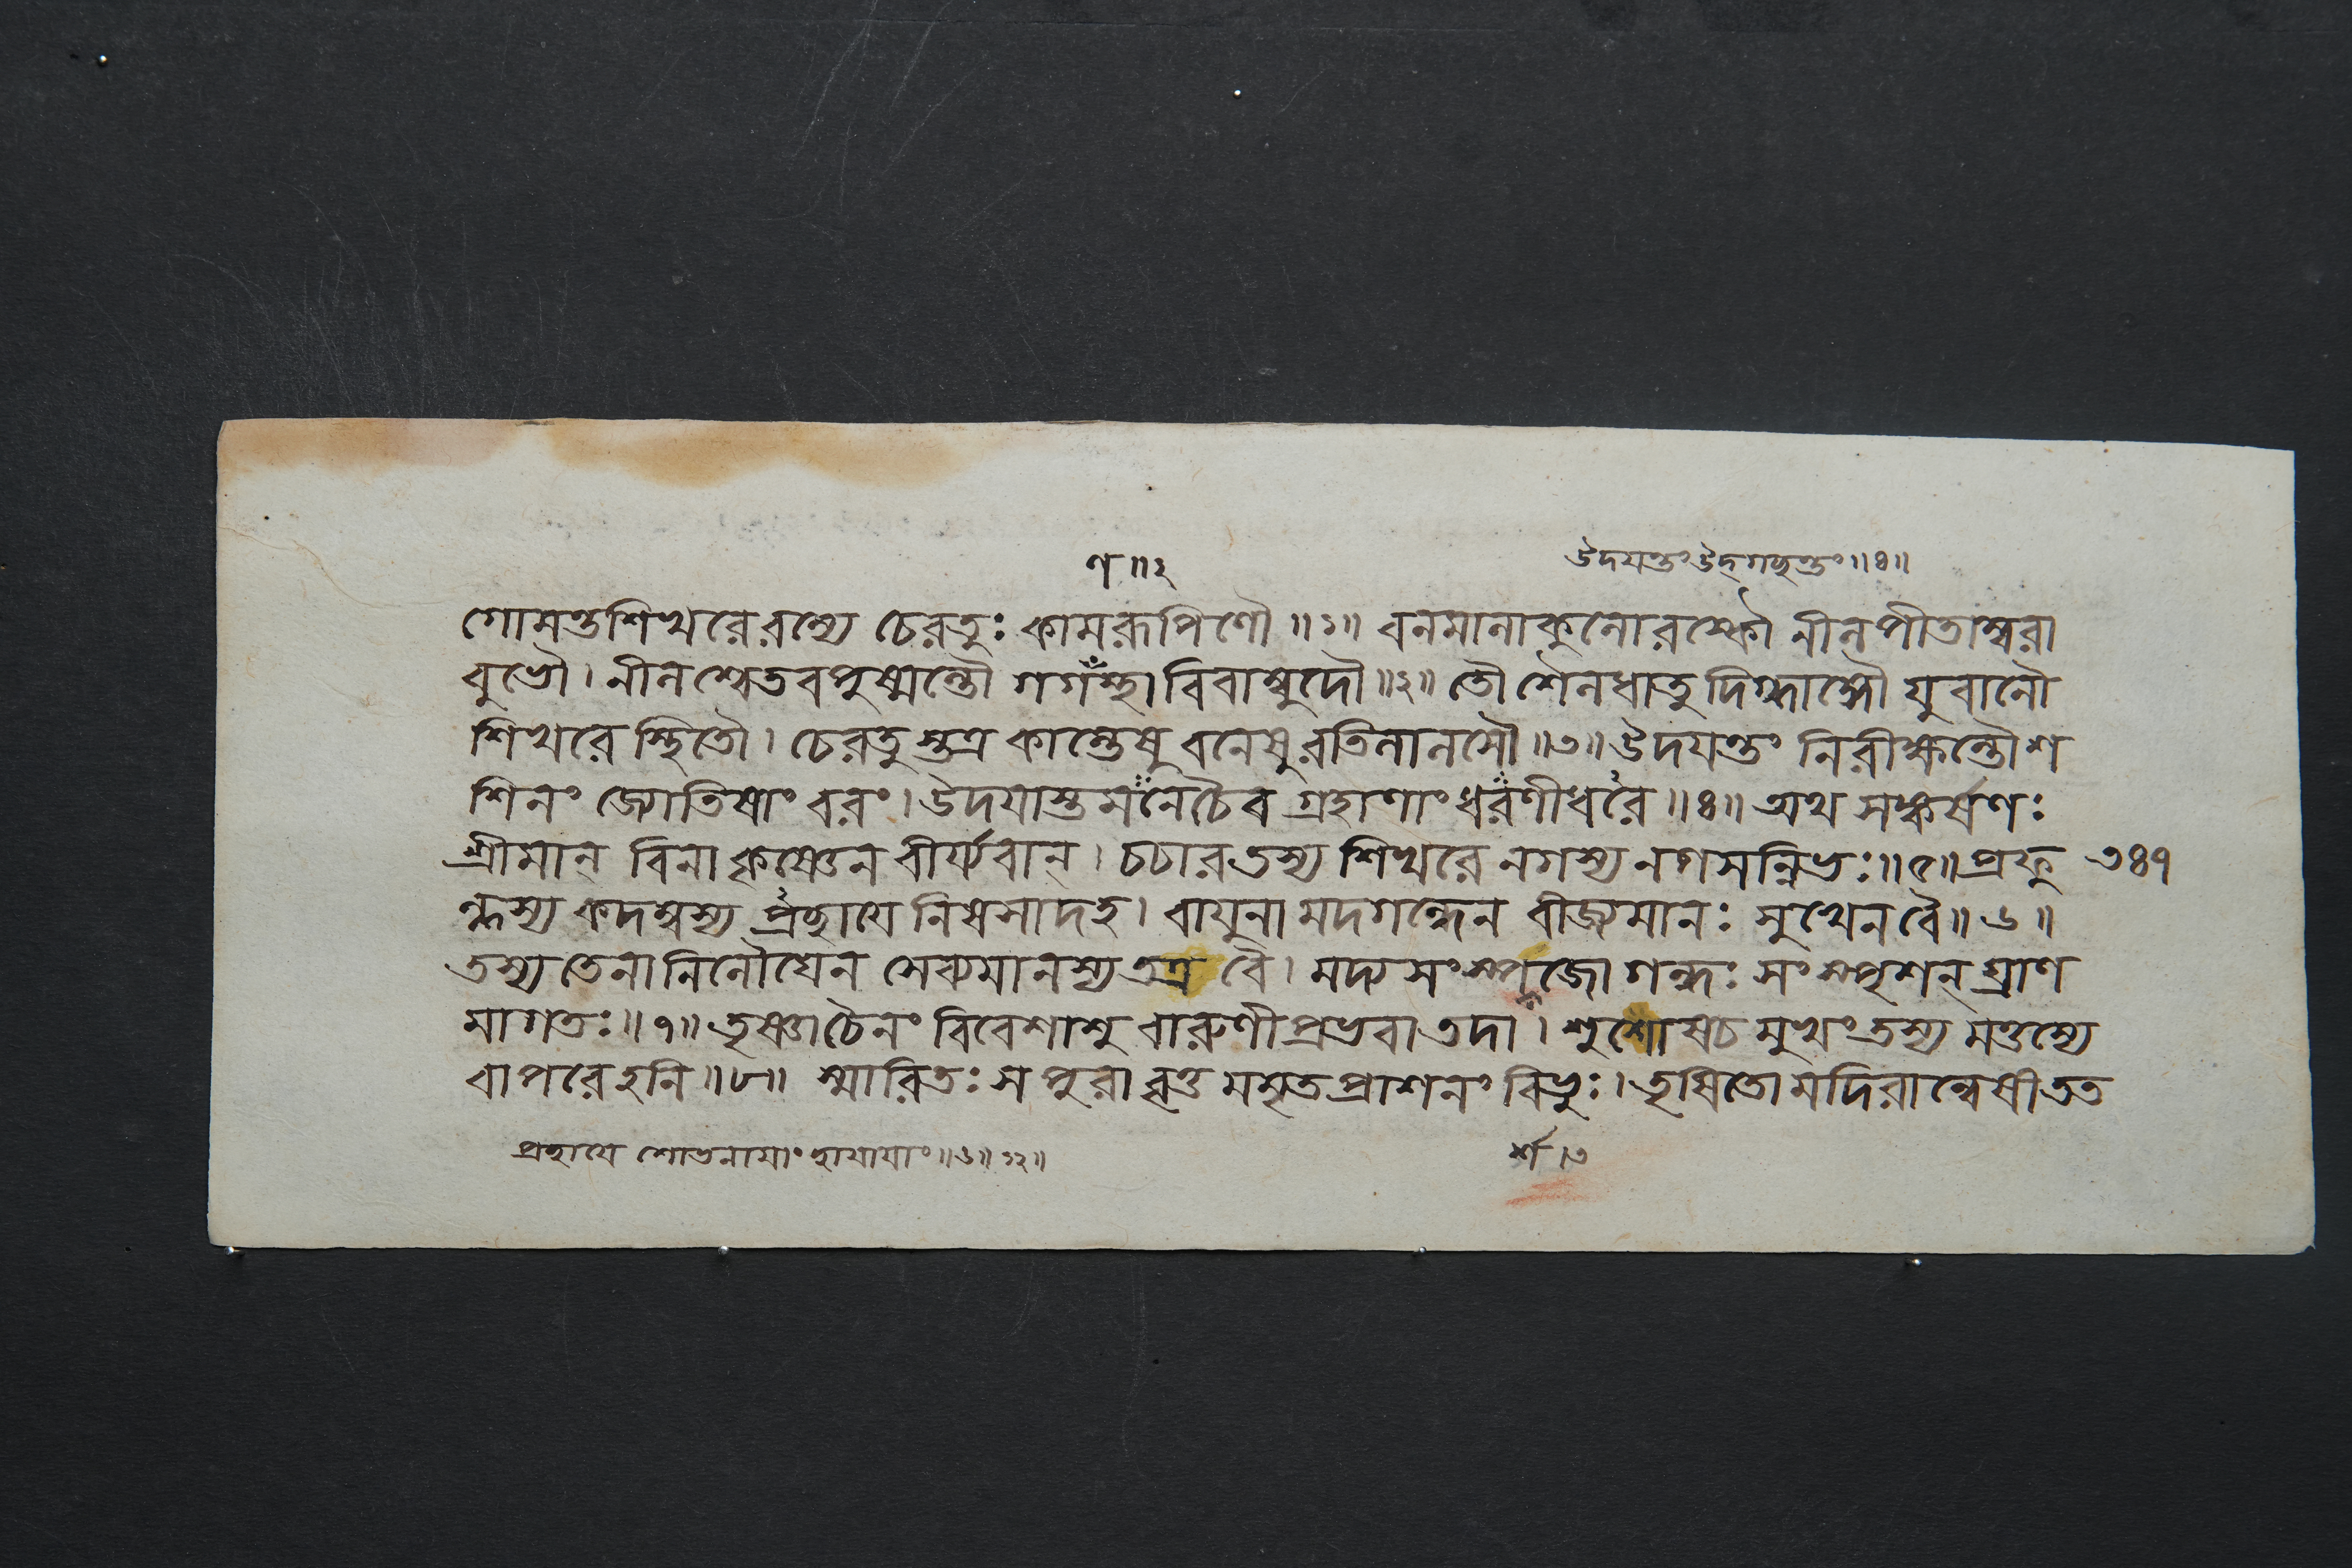 ণ॥২
উদযন্তং উদ্গচ্ছন্তং॥৪॥
গোমন্তশিখরে রম্যে চেরতুঃ কামরূপিণৌ॥১॥ বনমালাকুলোরস্কৌ নীলপীতাম্বরা
বুভৌ। নীলশ্বেতবপুষ্মন্তৌ গগঁস্থাবিবাম্বুদৌ॥২॥ তৌ শৈলধাতুদিগ্ধাঙ্গৌ যুবানৌ
শিখরে স্থিতৌ। চেরতুস্তত্র কান্তেষু বনেষু রতিলালসৌ॥৩॥ উদযন্তং নিরীক্ষন্তৌ শ
শিনং জ্যোতিষাং বরং। উদযাস্তমনেচৈব গ্রহাণাং ধরণীধরৈ॥৪॥ অথ সঙ্কর্ষণঃ
শ্রীমান্ বিনা কৃষ্ণেন বীর্য্যবান্। চচার তস্য শিখরে নগস্য নগসন্নিভঃ॥৫॥ প্রফু
ল্লস্য কদম্বস্য প্রচ্ছাযে নিষসাদ হ। বাযুনা মদগন্ধেন বীজ্যমানঃ সুখেন বৈ॥৬॥
৩৪৭
তস্য তেনানিলৌঘেন সেব্যমানস্য তত্র বৈ। মদ্য সংস্পর্শজো গন্ধঃ সংস্পৃশন্ ঘ্রাণ
মাগতঃ॥৭॥ তৃষ্ণাচৈনং বিবেশাশু বারুণীপ্রভবা তদা। শুশোষ চ মুখং তস্য মত্তস্যে
বাপরেঽহনি॥৮॥ স্মারিতঃ স পুরাবৃত্তমমৃতপ্রাশনং বিভুঃ। তৃষিতো মদিরান্বেষী তত
প্রচ্ছাযে শোভনাযাং ছাযাযাং॥৬॥১২॥
র্শ।৩